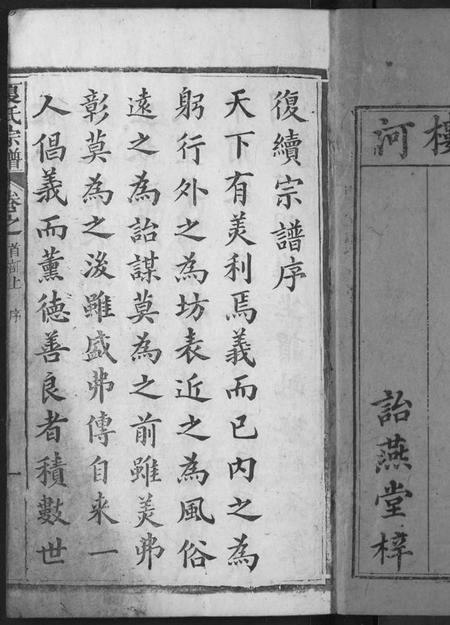 樓
河
詒燕堂梓
復續宗譜序
天下有美利焉義而已內之為
躬行外之為坊表近之為風俗
遠之為詒謀莫為之前雖美弗
彰莫為之後雖盛弗傳自来一
人倡義而薰德善良者積數世
夏氏宗譜
卷之一
首前上
序
一